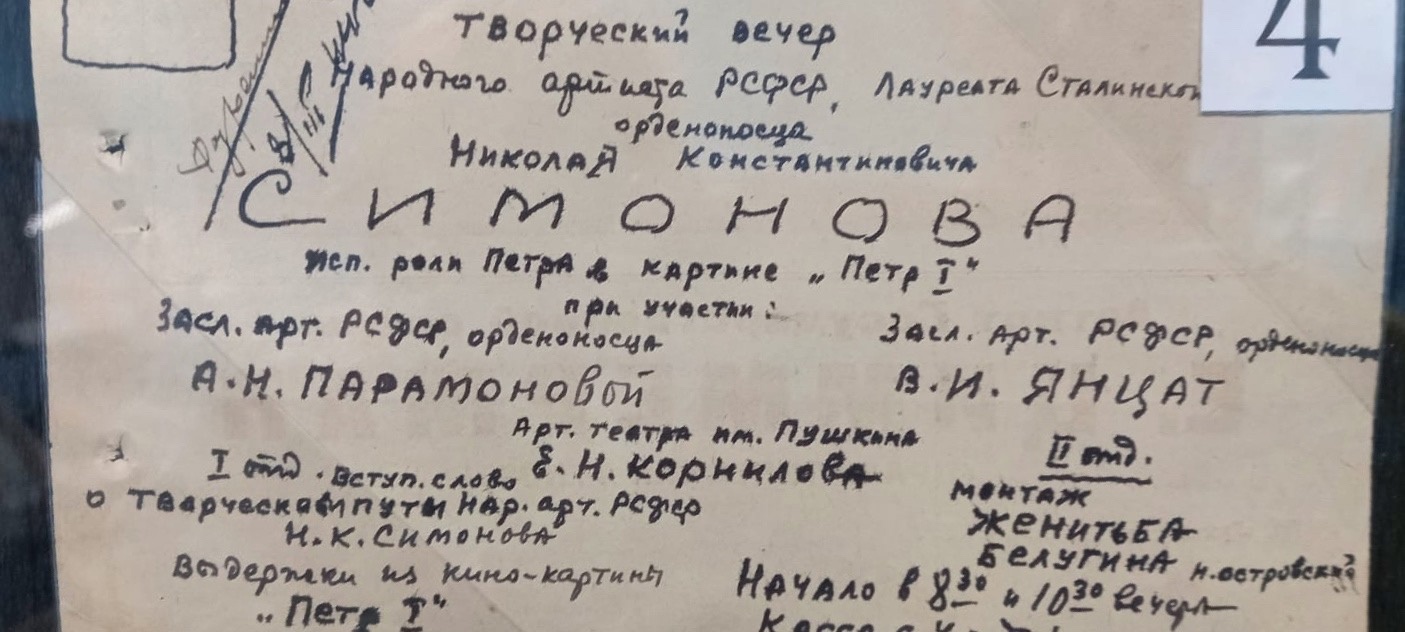 4
Творческий вечер
Народного артиста РСФСР, Лауреата Сталинской
орденоносца
Николая Константиновича
СИМОНОВА
исп. роли Петра в картине „Петр I“
при участии:
Засл. арт. РСФСР, орденоносца
А.Н. ПАРАМОНОВОЙ
Засл. арт. РСФСР, орденоносца
В.И. ЯНЦАТ
Арт. театра им. Пушкина
Е.Н. КОРНИЛОВА
I отд. Вступ. слово
о творческом пути нар. арт. РСФСР
Н.К. Симонова
Выдержки из кино-картины
„Петр I“
II отд.
монтаж
ЖЕНИТЬБА
БЕЛУГИНА Н. Островский
Начало в 8 30 и 10 30 вечера
Касса с